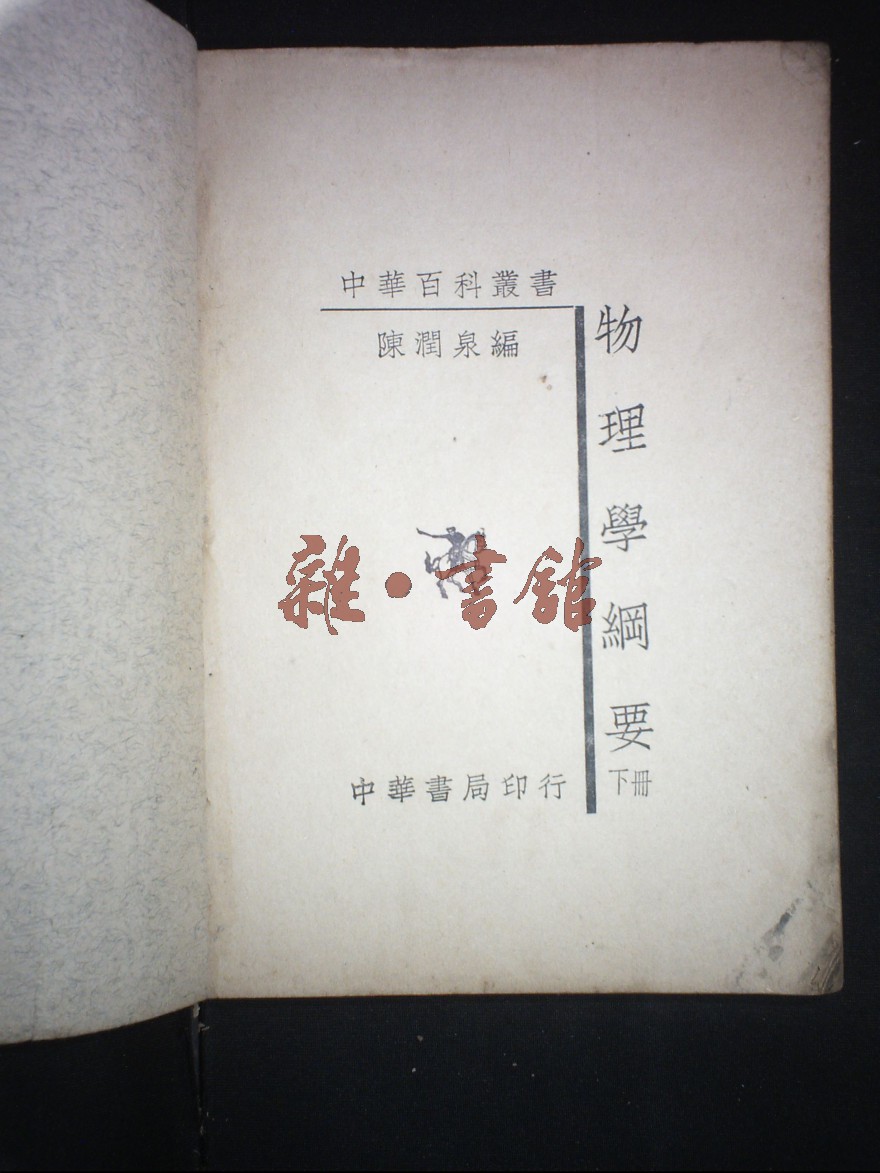 中華百科叢書
陳潤泉編
物理學綱要
下冊
雜·書館
中華書局印行